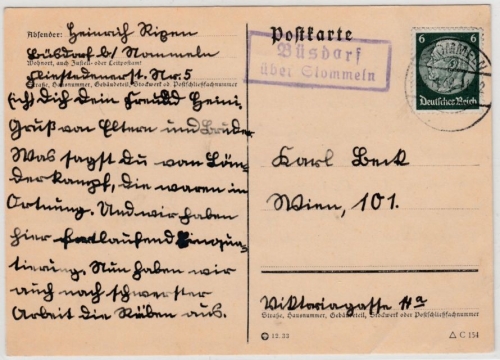 Absender: Heinrich Rixen
Büsdorf b/ Stommeln
Wohnort, auch Zustell- oder Leitpostamt
Fliestedenerst. Nr. 5
Straße, Hausnummer, Gebäudeteil, Stockwerk od. Postschließfachnummer
Dich dein Freund Heini
Gruß von Eltern und Bruder
Was sagst du vom Län-
derkampf, die waren in
Ortnung. Und wir haben
hier fortlaufend Einqua-
tierung. Nun haben wir
auch noch schwerster
Arbeit die Rüben aus.
Postkarte
Büsdorf
über Stommeln
6 6
Deutsches Reich
STOMMELN
Karl Beck
Wien, 101.
Viktoriagasse 11a
Straße, Hausnummer, Gebäudeteil, Stockwerk oder Postschließfachnummer
12. 33
C 154